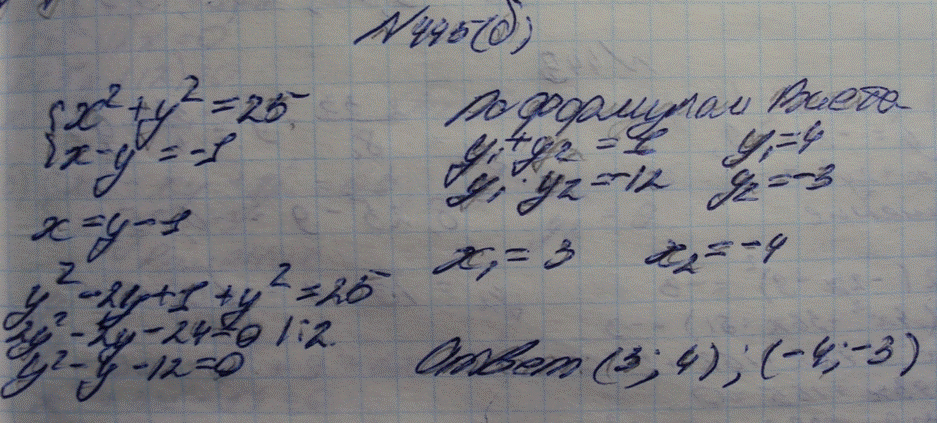 N 445(б)
{x² + y² = 25
{x - y = -1
x = y - 1
y² - 2y + 1 + y² = 25
2y² - 2y - 24 = 0 |:2
y² - y - 12 = 0
По формулам Виета
y₁ + y₂ = 1 y₁ = 4
y₁ · y₂ = -12 y₂ = -3
x₁ = 3 x₂ = -4
Ответ (3; 4); (-4; -3)